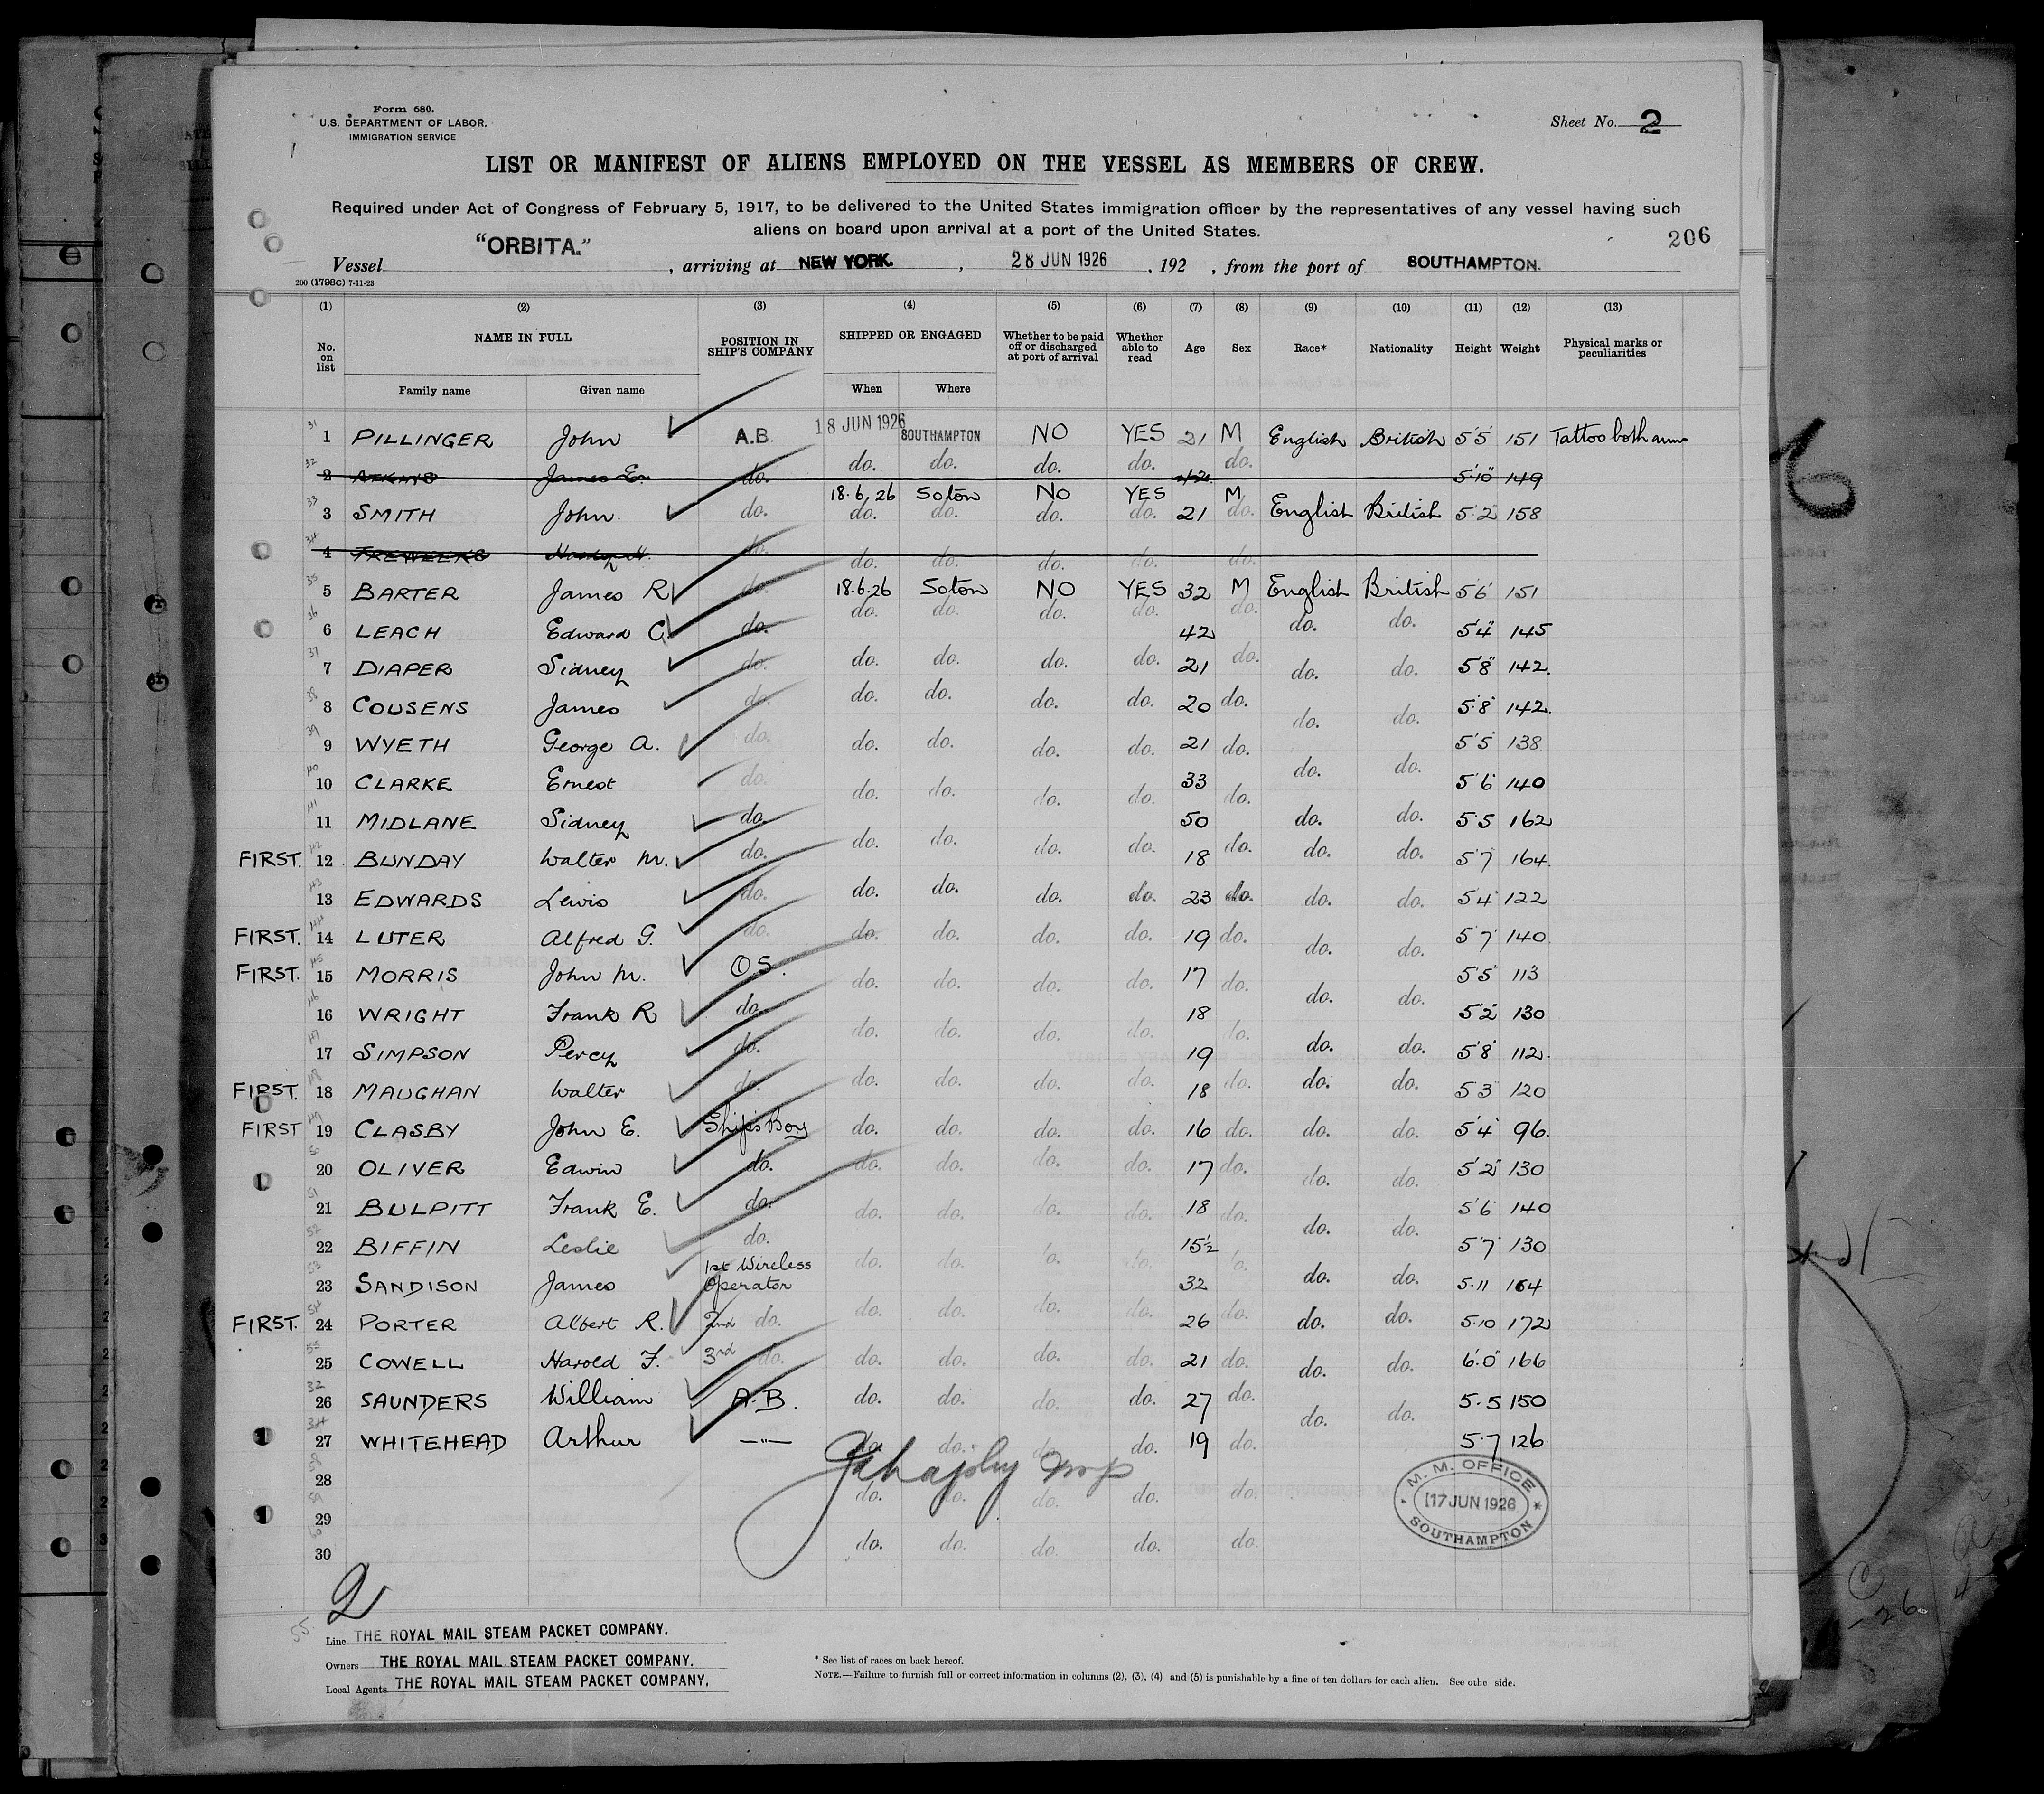 Form 680.
U.S. DEPARTMENT OF LABOR.
IMMIGRATION SERVICE
Sheet No. 2
LIST OR MANIFEST OF ALIENS EMPLOYED ON THE VESSEL AS MEMBERS OF CREW.
Required under Act of Congress of February 5, 1917, to be delivered to the United States immigration officer by the representatives of any vessel having such
aliens on board upon arrival at a port of the United States.
206
Vessel "ORBITA." , arriving at NEW YORK. , 28 JUN 1926 , 192 , from the port of SOUTHAMPTON.
200 (1798C) 7-11-23
(1) (2) (3) (4) (5) (6) (7) (8) (9) (10) (11) (12) (13)
No. on list NAME IN FULL POSITION IN SHIP'S COMPANY SHIPPED OR ENGAGED Whether to be paid off or discharged at port of arrival Whether able to read Age Sex Race* Nationality Height Weight Physical marks or peculiarities
Family name Given name When Where
31 1 PILLINGER John A.B. 18 JUN 1926 SOUTHAMPTON NO YES 21 M English British 5'5" 151 Tattoo both arms
32 2 ATKINS James E. do. do. do. do. do. do. 5'10" 149
33 3 SMITH John. do. 18.6.26 Soton NO YES M do. do. do. do. 21 do. English British 5'2" 158
34 4 TREWEEKS do. do. do. do. do. do.
35 5 BARTER James R do. 18.6.26 Soton NO YES 32 M English British 5'6" 151
36 6 LEACH Edward C. do. do. do. do. do. 42 do. do. do. 5'4" 145
37 7 DIAPER Sidney do. do. do. do. do. 21 do. do. do. 5'8" 142.
38 8 COUSENS James do. do. do. do. do. 20 do. do. do. 5'8" 142.
39 9 WYETH George A. do. do. do. do. do. 21 do. do. do. 5'5" 138
40 10 CLARKE Ernest do. do. do. do. do. 33 do. do. do. 5'6" 140
41 11 MIDLANE Sidney do. 50 do. do. 5'5 162
FIRST. 42 12 BUNDAY Walter M. do. do. do. do. do. 18 do. do. do. 5'7 164.
43 13 EDWARDS Lewis do. do. do. do. do. 23 do. do. do. 5'4" 122
FIRST. 44 14 LUTER Alfred G. do. do. do. do. do. 19 do. do. do. 5'7 140.
FIRST. 45 15 MORRIS John M. O.S. do. do. do. do. 17 do. do. do. 5'5" 113
46 16 WRIGHT Frank R do. do. do. do. do. 18 do. 5'2" 130
47 17 SIMPSON Percy do. 19 do. do. 5'8" 112.
FIRST. 48 18 MAUGHAN Walter do. do. do. do. do. 18 do. do. do. 5'3" 120
FIRST 49 19 CLASBY John E. Ship's Boy do. do. do. do. 16 do. do. do. 5'4" 96.
50 20 OLIVER Edwin do. do. do. do. do. 17 do. do. do. 5'2" 130
51 21 BULPITT Frank E. do. do. do. do. do. 18 do. do. do. 5'6" 140
52 22 BIFFIN Leslie do. do. do. do. do. 15½ do. 5'7" 130
53 23 SANDISON James 1st Wireless Operator 32 do. do. 5.11 164
FIRST. 54 24 PORTER Albert R. 2nd do. do. do. do. do. 26 do. do. do. 5.10 172
55 25 COWELL Harold F. 3rd do. do. do. do. do. 21 do. do. do. 6'.0" 166
32 26 SAUNDERS William A.B. do. do. do. do. 27 do. do. do. 5.5 150
34 27 WHITEHEAD Arthur —"— do. do. do. do. 19 do. 5.7 126
28 do. do. do. do. do.
29
30 do. do. do. do. do.
M. M. OFFICE
17 JUN 1926
SOUTHAMPTON
2
55
Line THE ROYAL MAIL STEAM PACKET COMPANY.
Owners THE ROYAL MAIL STEAM PACKET COMPANY.
Local Agents THE ROYAL MAIL STEAM PACKET COMPANY.
* See list of races on back hereof.
NOTE.—Failure to furnish full or correct information in columns (2), (3), (4) and (5) is punishable by a fine of ten dollars for each alien. See othe side.